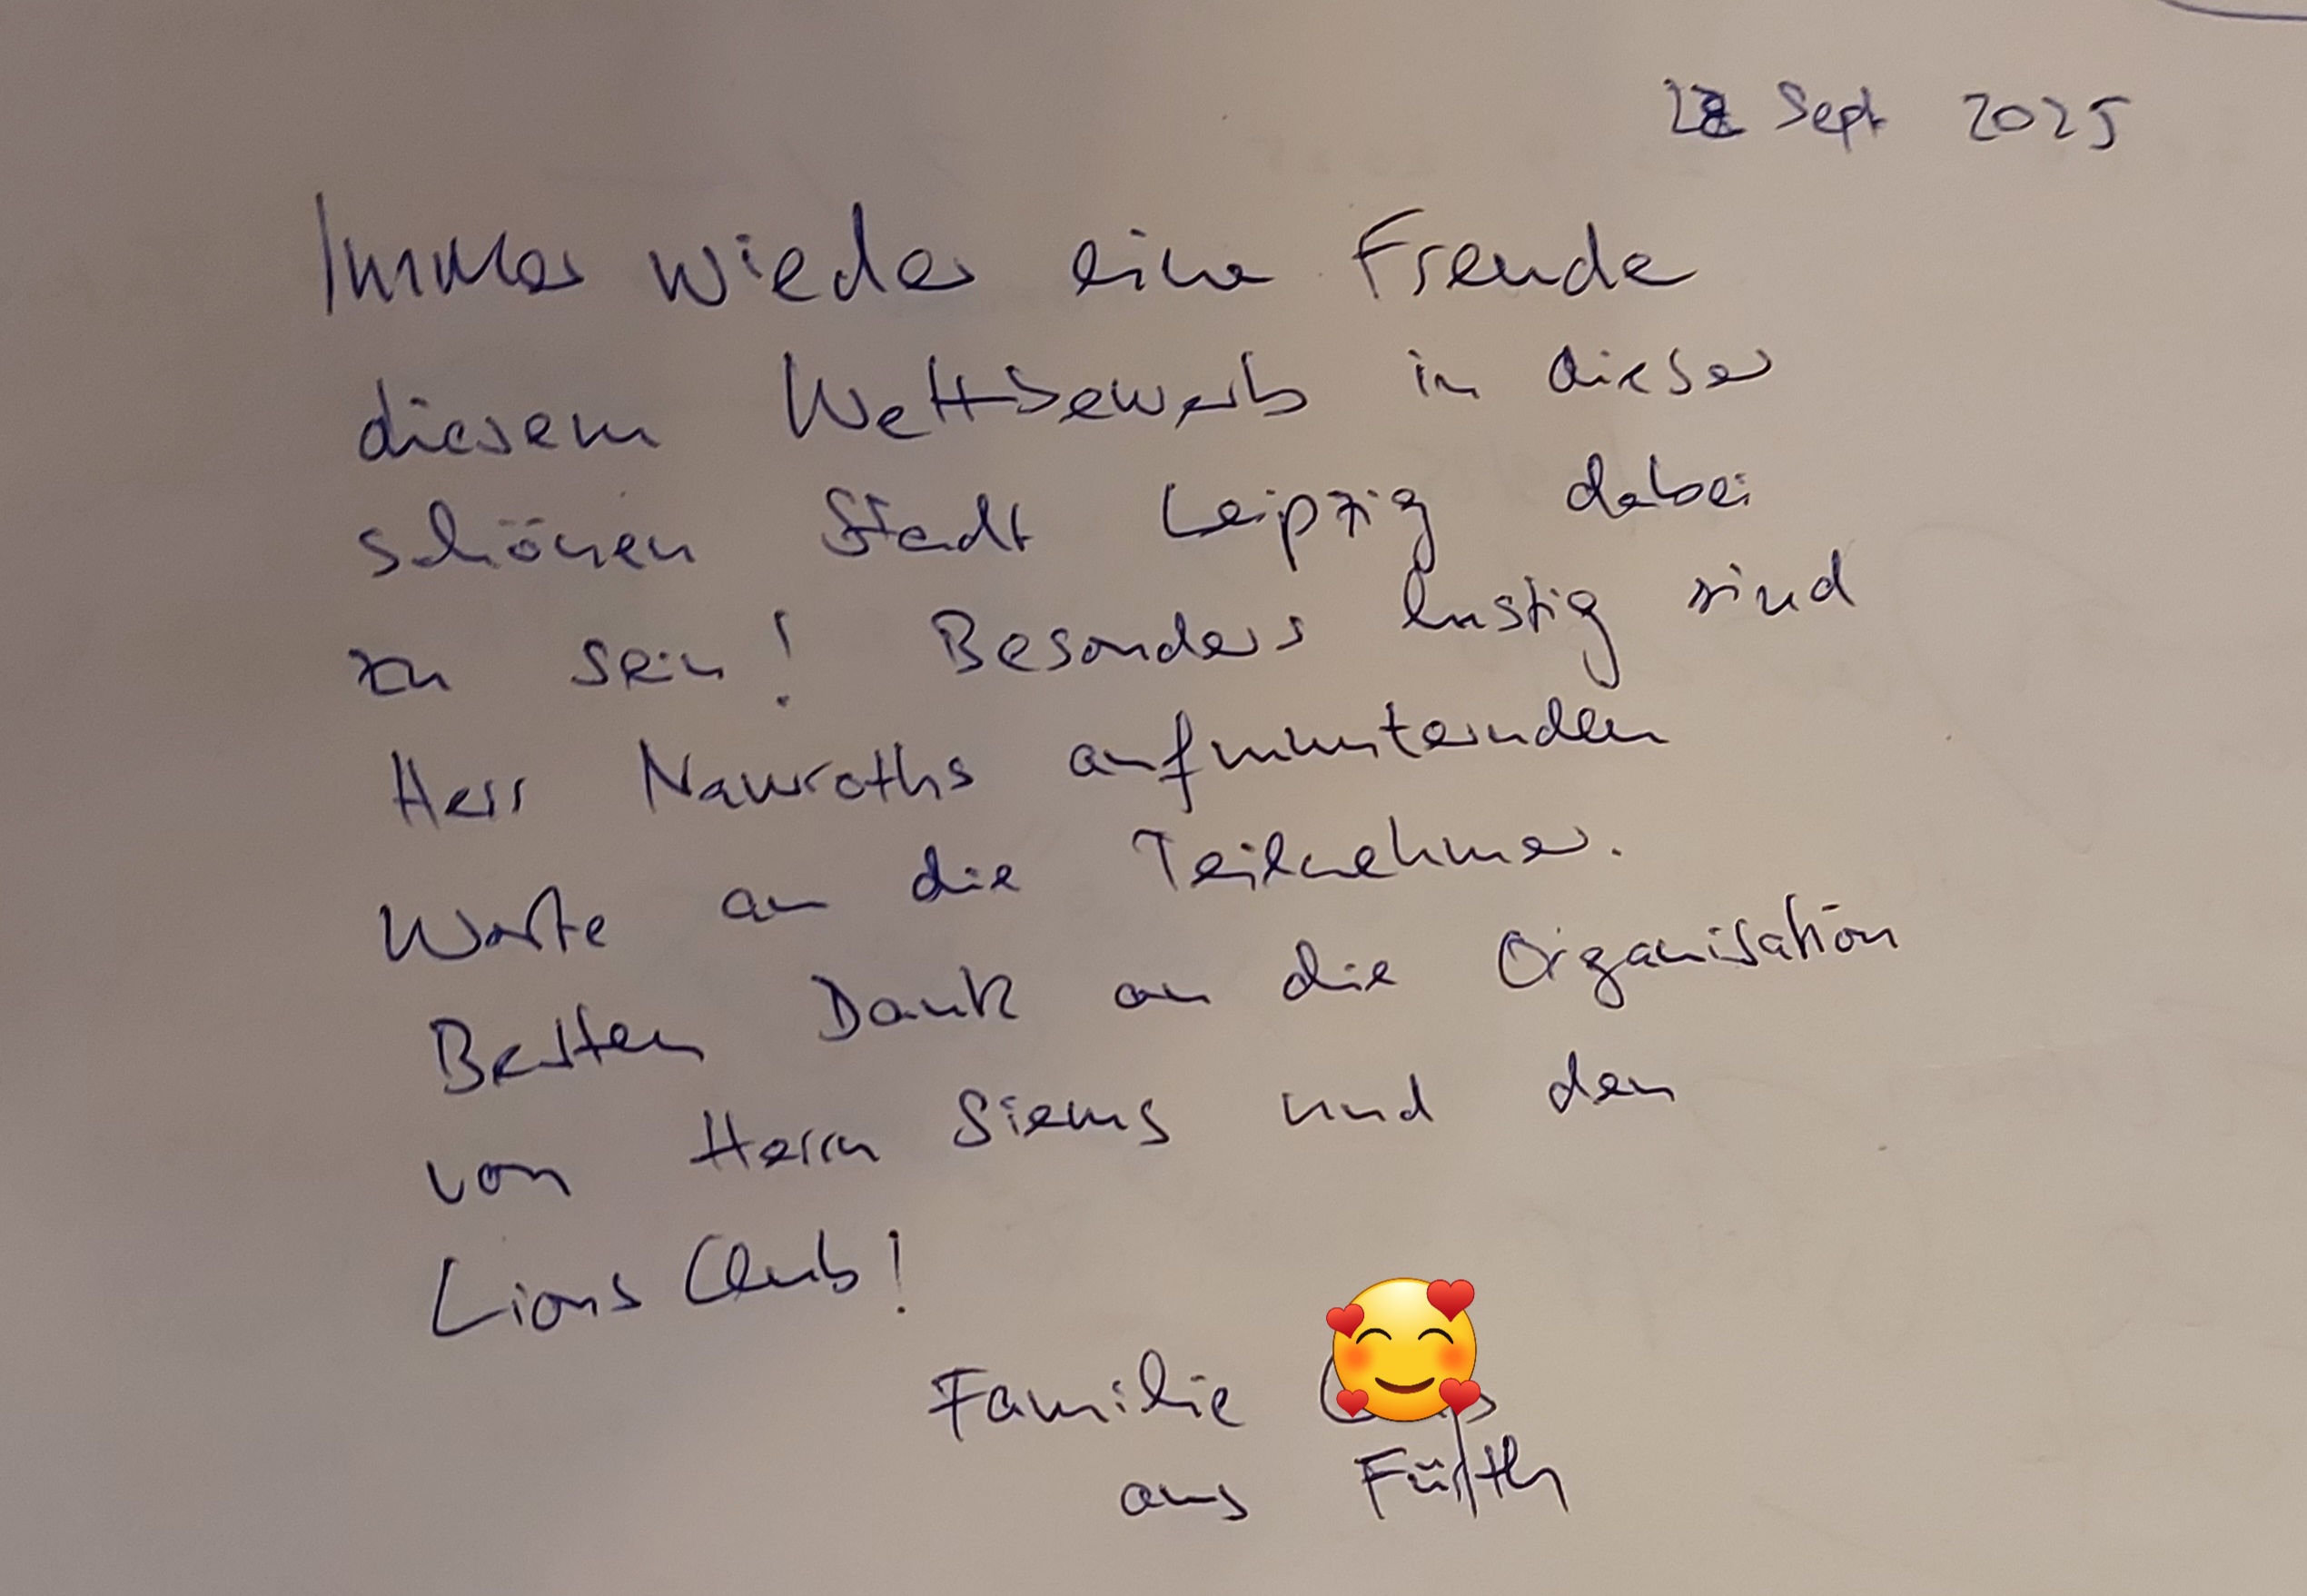 Sept 2025
Immer wieder eine Freude
diesem Wettbewerb in dieser
schönen Stadt Leipzig dabei
zu sein! Besonders lustig sind
Herr Nawroths aufmunternden
Worte an die Teilnehmer.
Besten Dank an die Organisation
von Herrn Siems und den
Lions Club!
Familie
aus Fürth